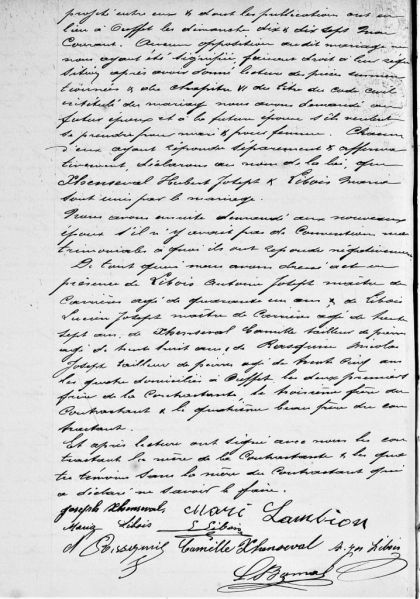 projeté entre eux & dont les publications ont eu
lieu à Ouffet les dimanches dix & dix sept Mai
Courant. Aucune opposition audit mariage ne
nous ayant été signifiée, faisant droit à leur réqui
sition, après avoir donné lecture des pièces sus men
tionnées & du chapitre VI du titre du code civil
intitulé du mariage nous avons demandé au
futur époux et à la future épouse s'ils veulent
se prendre pour mari & pour femme. Chacun
d'eux ayant répondu séparément & affirma
tivement, déclarons au nom de la loi, que
Xhenseval Hubert Joseph & Libois Maria
sont unis par le mariage.
Nous avons ensuite demandé aux nouveaux
époux s'il n'y avait pas de Convention ma
trimoniales à quoi ils ont répondu négativement
De tout quoi nous avons dressé acte en
présence de Libois Antoine Joseph maître de
Carrières agé de quarante un ans & de Libois
Lucien Joseph maître de Carrière agé de trente
sept ans, de Xhenseval Camille tailleur de pierres
agé de trente huit ans, de Nicolas
Joseph tailleur de pierres agé de trente cinq ans
les quatre domiciliés à Ouffet les deux premiers
frère de la Contractante, le troisième frère du
Contractant & le quatrième beau frère du con
tractant.
Et après lecture ont signé avec nous les con
tractant la mère de la Contractante & les qua
tre témoins sauf la mère du Contractant qui
a déclaré ne savoir le faire.
Joseph Xhenseval Marie Lambion
Maria Libois L Libois
N Camille Xhenseval Libois